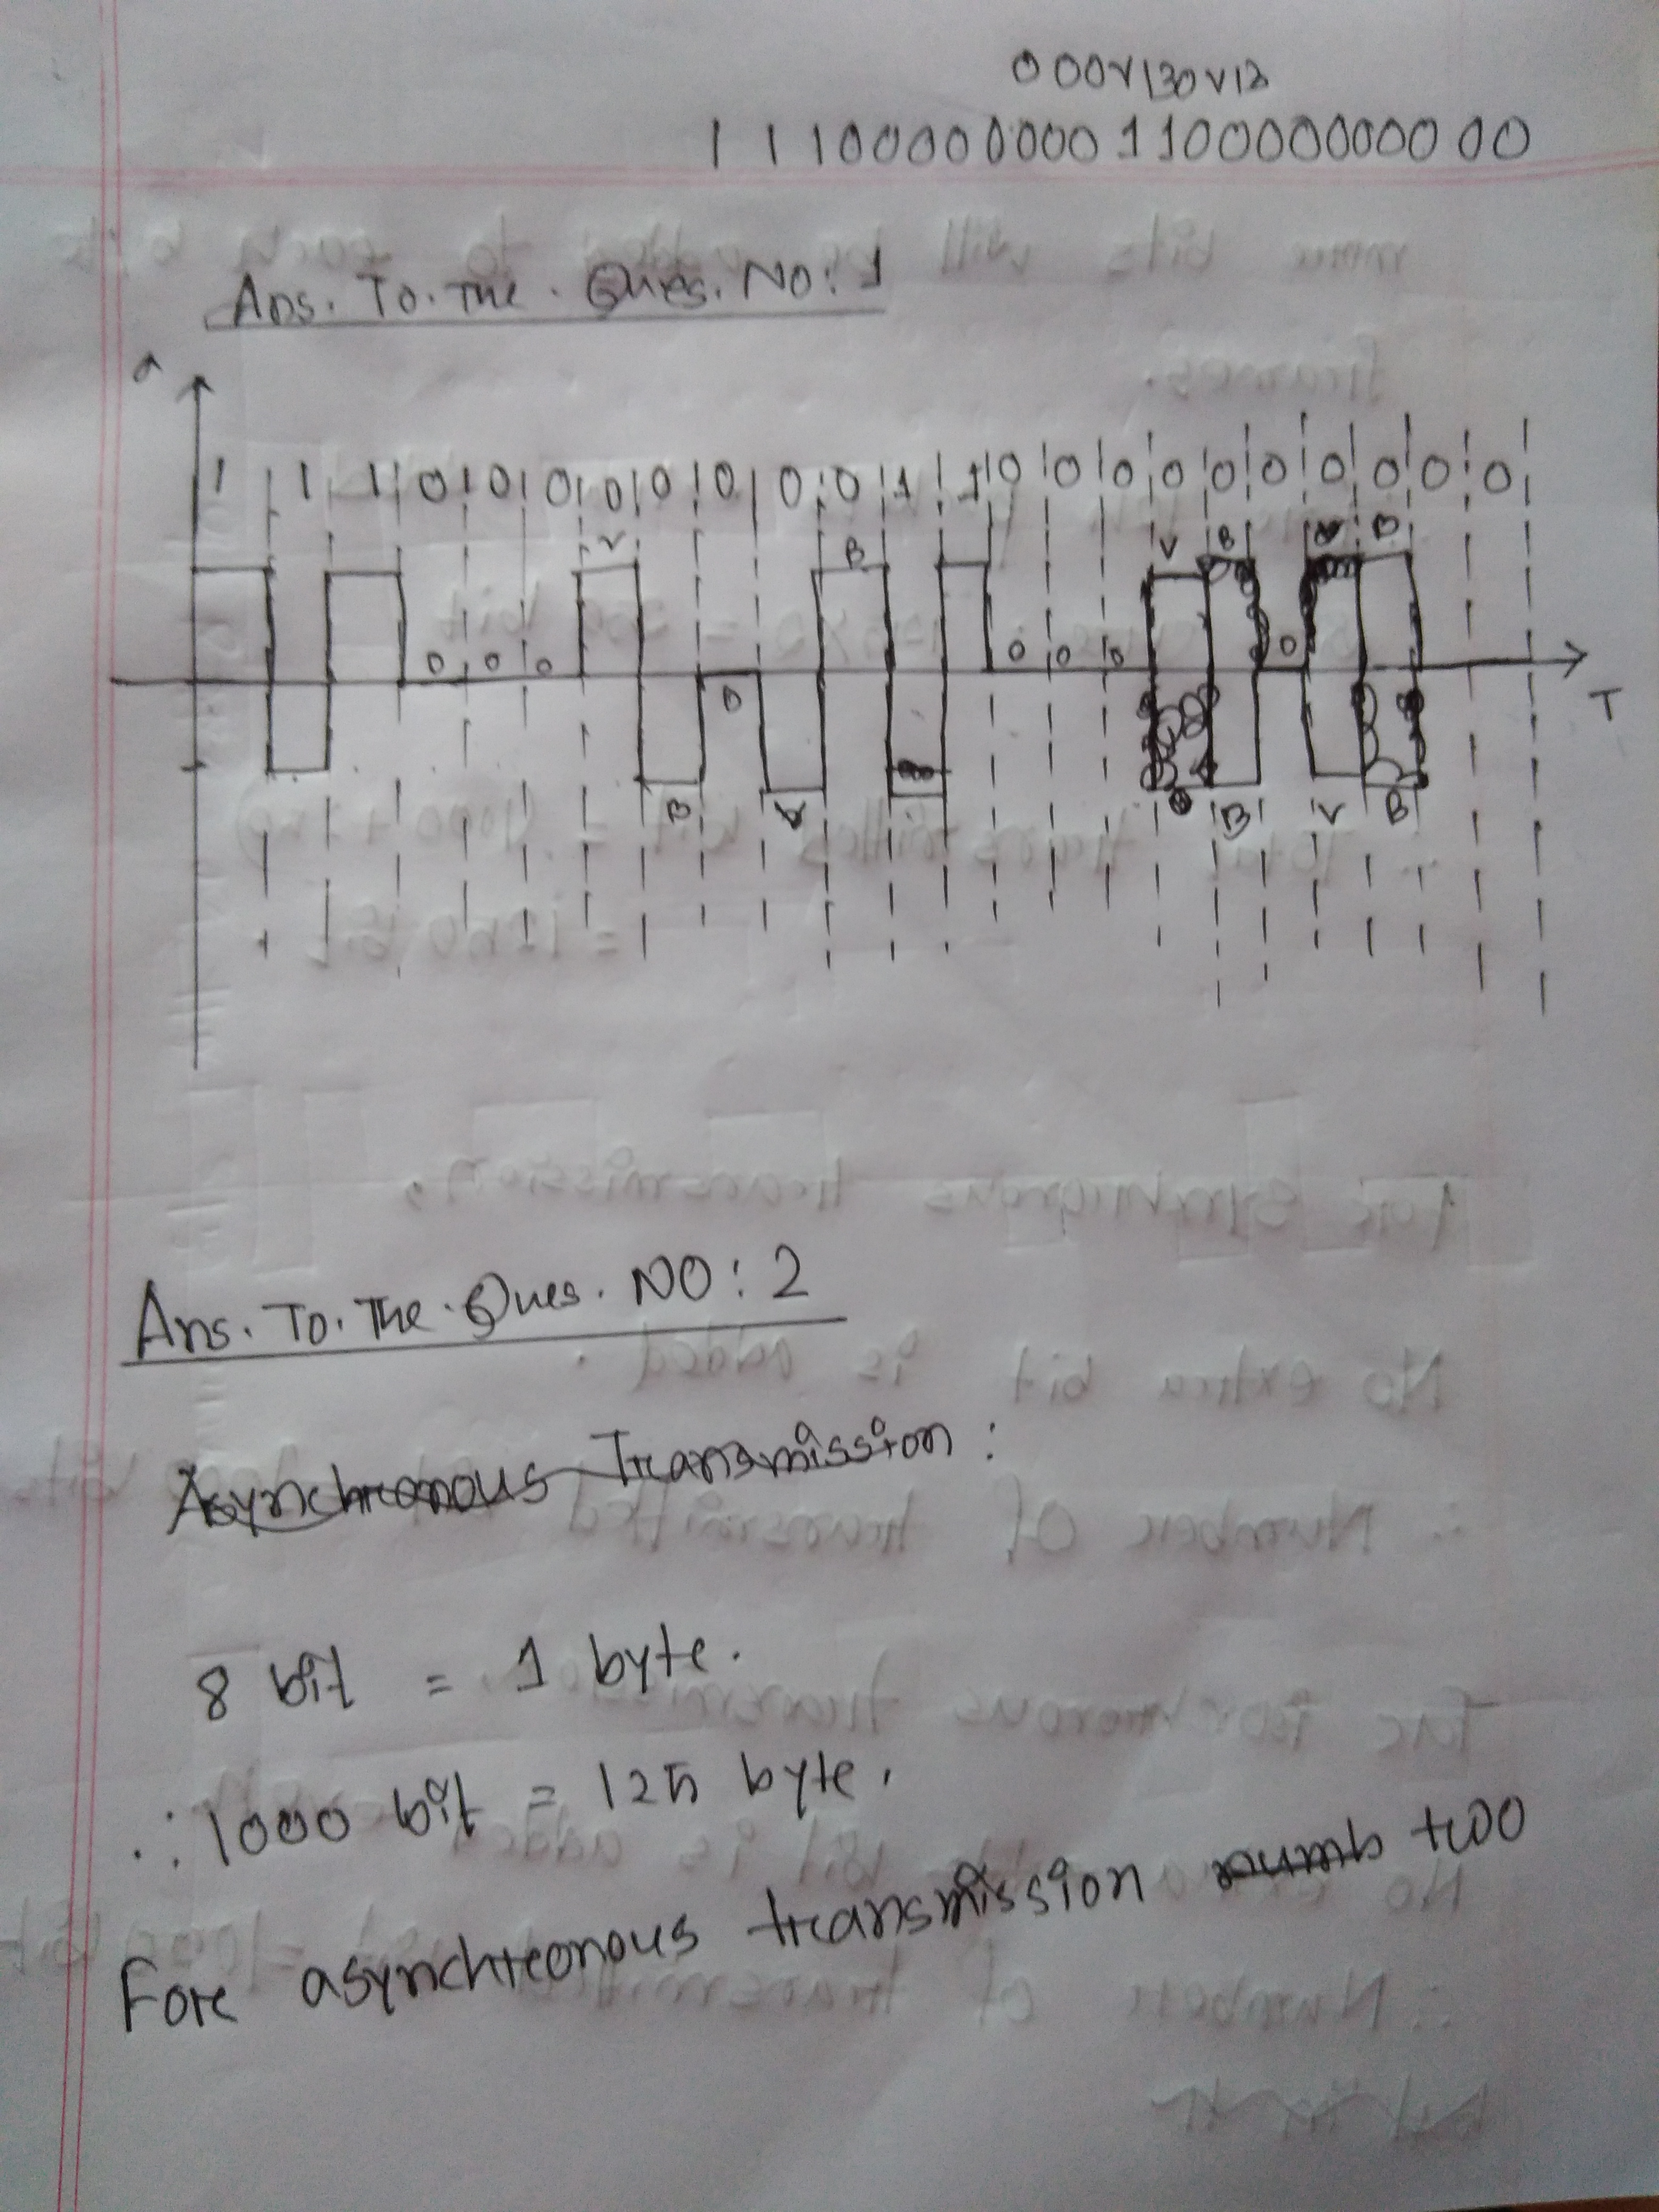 000VB0VB
1 1 1 0 0 0 0 0 0 0 0 1 1 0 0 0 0 0 0 0 0 0 0
Ans. To. The. Ques. No: 1
1 1 1 0 0 0 0 0 0 0 0 1 1 0 0 0 0 0 0 0 0 0 0
V B V B V B
0 0 0 0 0 0 0 0
T
B V B V B
Ans. To. The. Ques. NO: 2
Asynchronous Transmission:
8 bit = 1 byte.
∴ 1000 bit = 125 byte.
Fore asynchronous transmission numb two